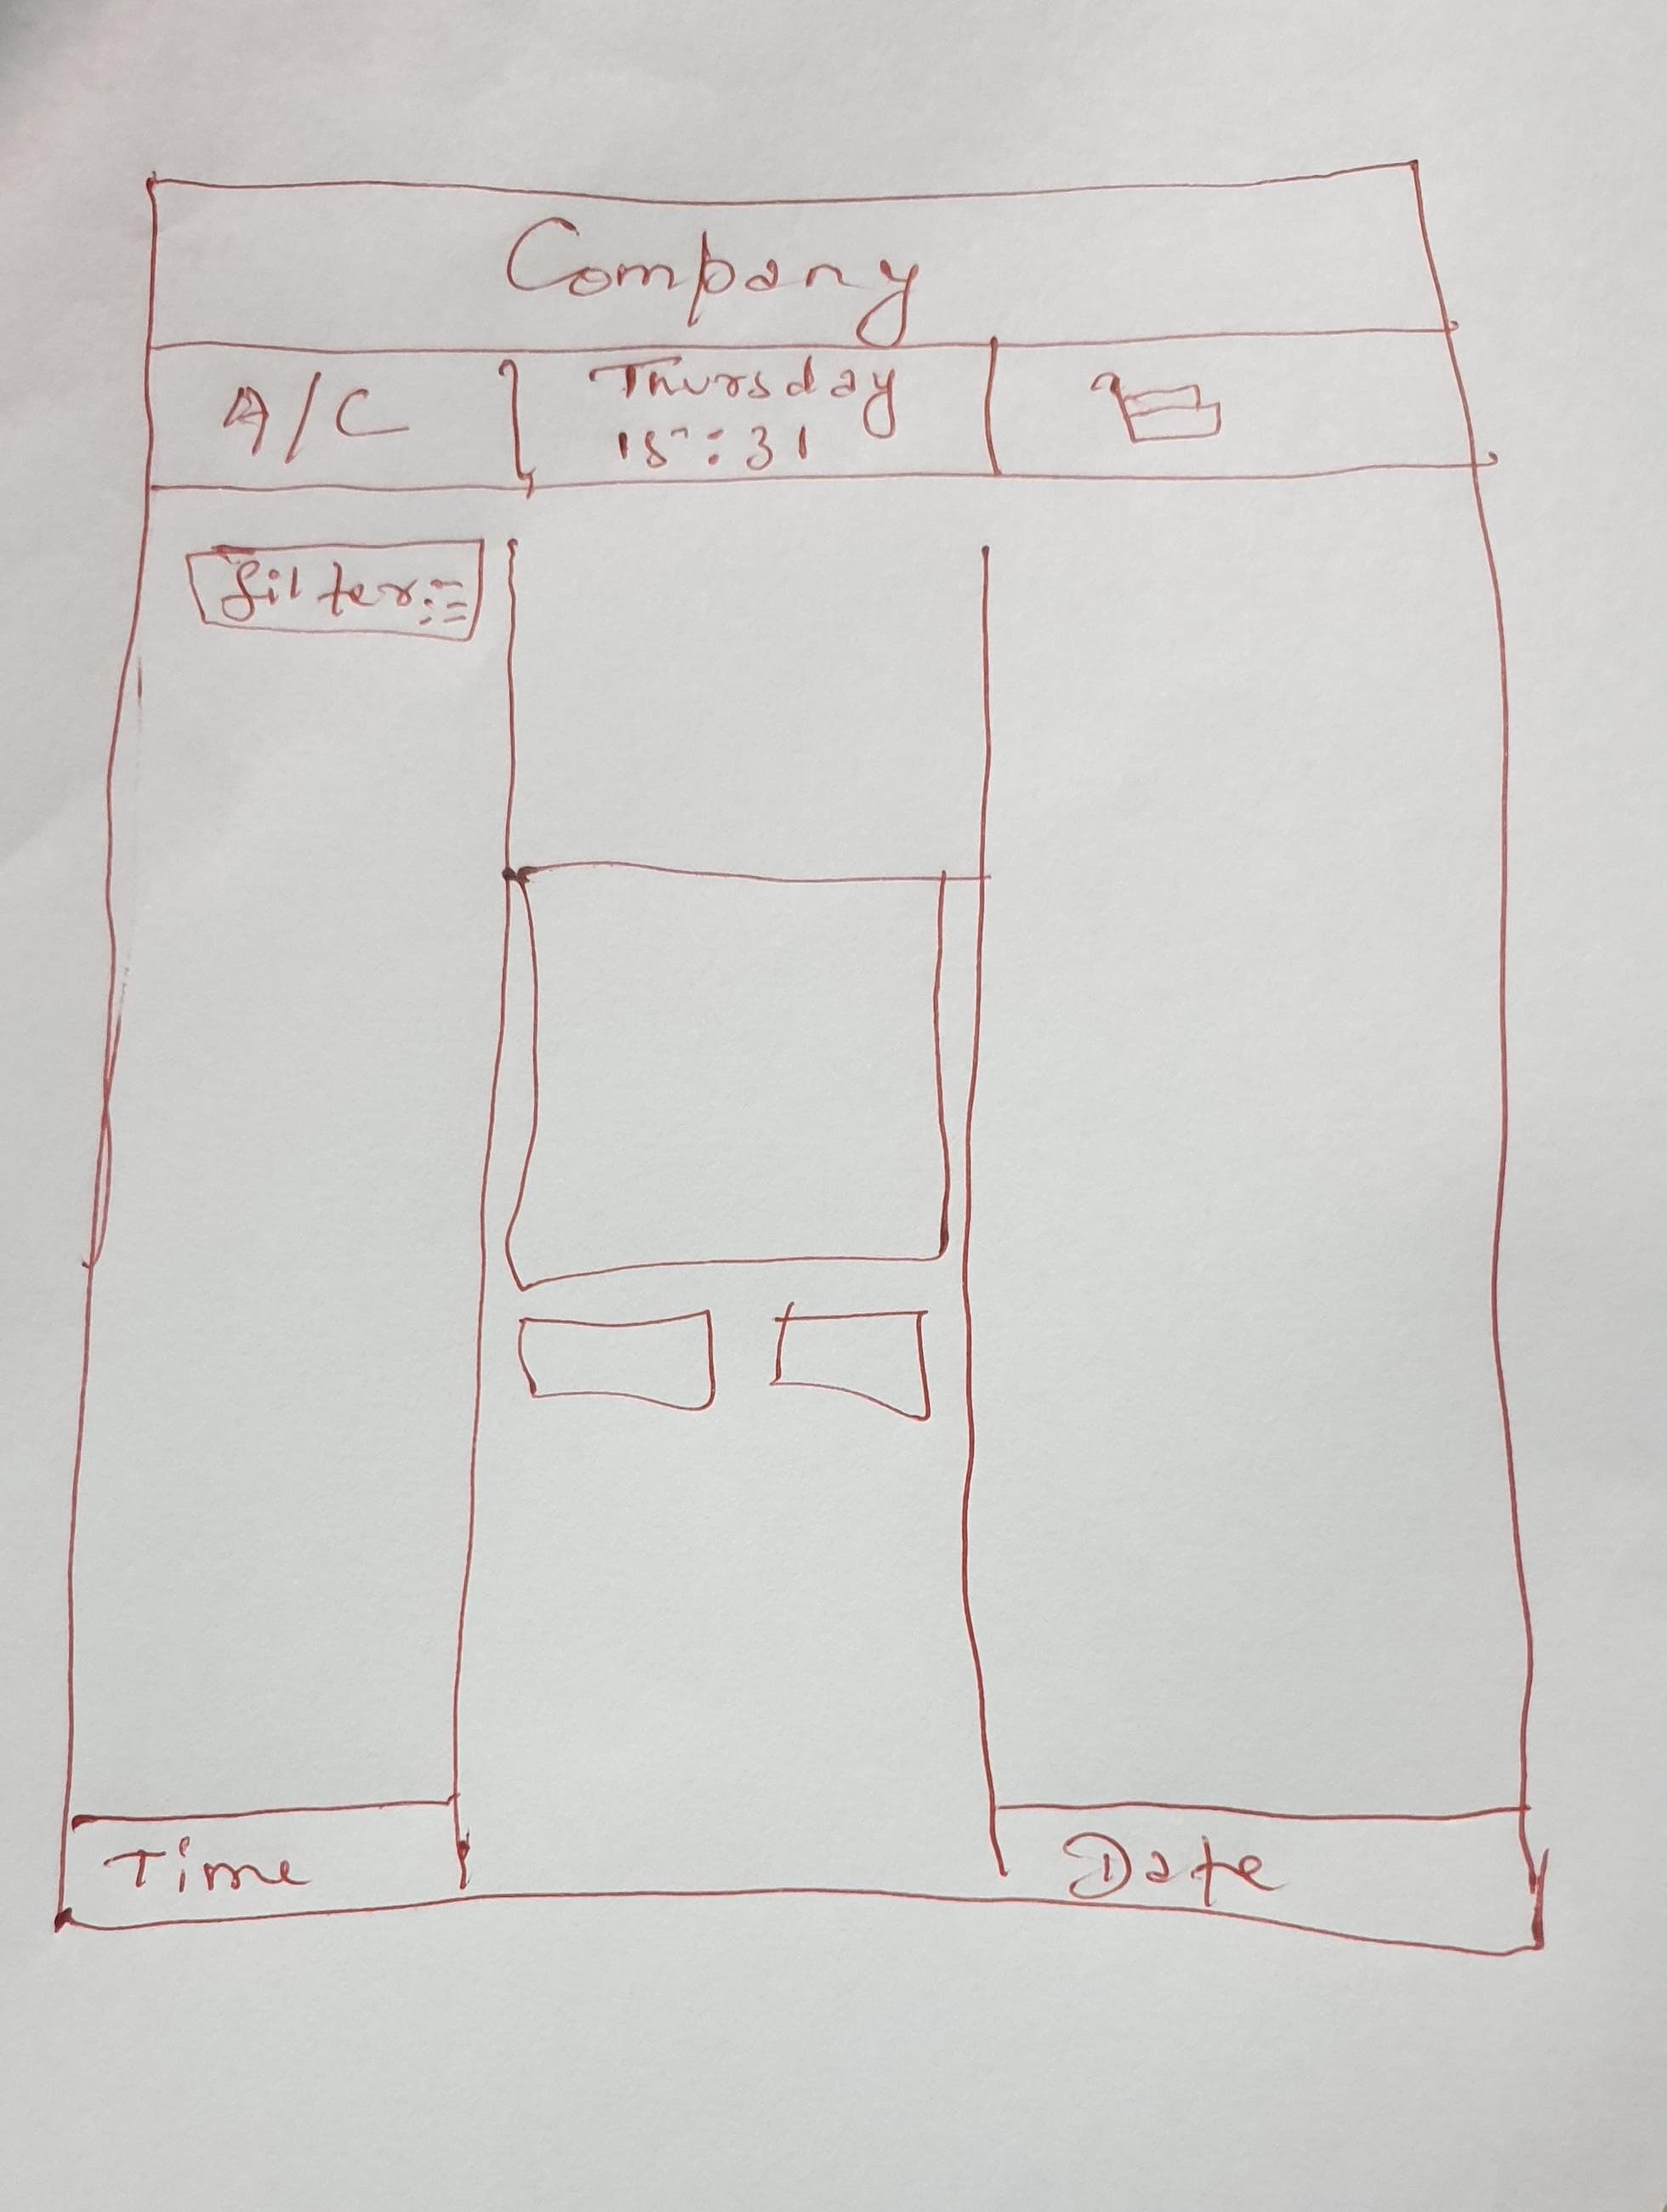 Company
A/C
Thursday
15:31
filter
Time
Date